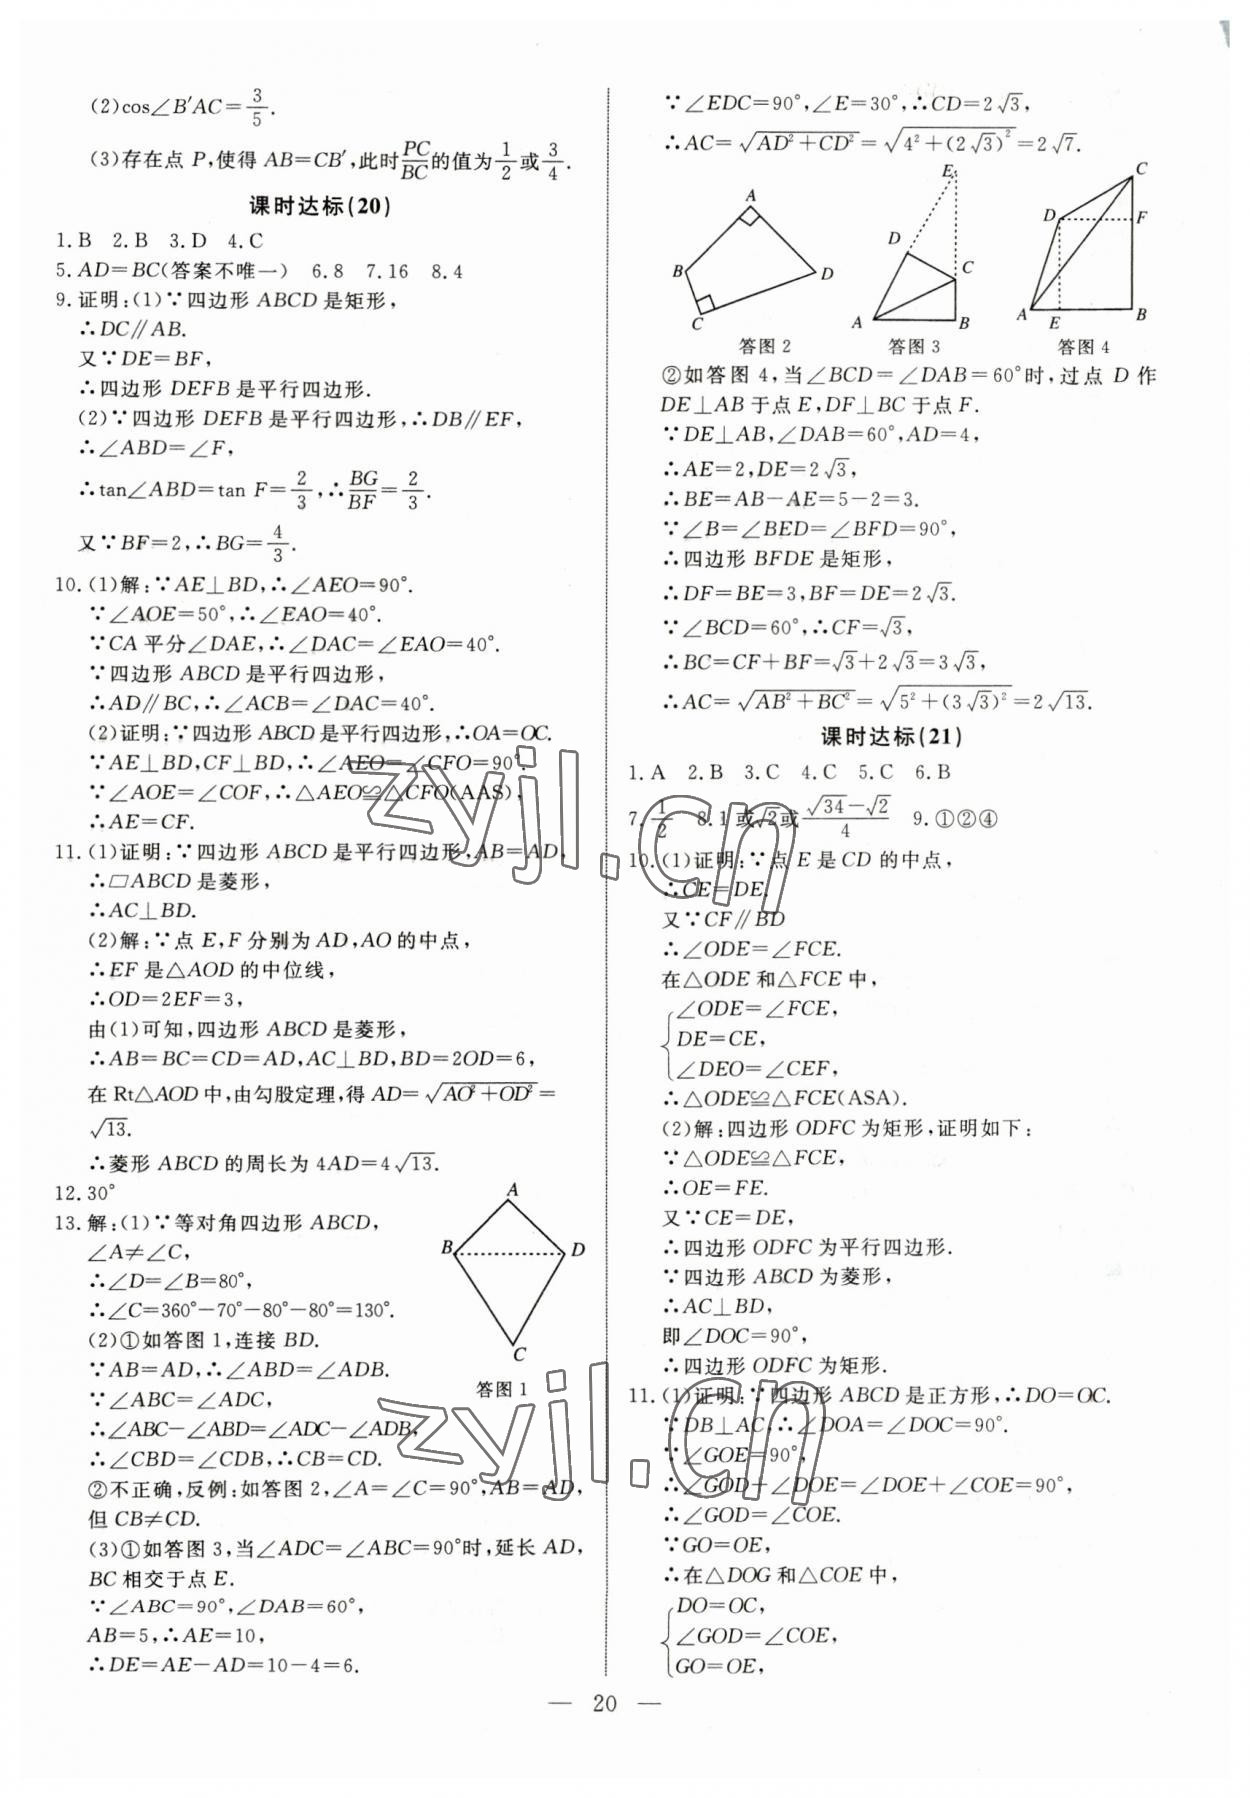 (2)cos∠B′AC=3/5.
(3)存在点 P,使得 AB=CB′,此时PC/BC的值为1/2或3/4.
课时达标(20)
1.B 2.B 3.D 4.C
5.AD=BC(答案不唯一) 6.8 7.16 8.4
9.证明:(1)∵四边形 ABCD 是矩形,
∴DC∥AB.
又∵DE=BF,
∴四边形 DEFB 是平行四边形.
(2)∵四边形 DEFB 是平行四边形,∴DB∥EF,
∴∠ABD=∠F,
∴tan∠ABD=tan F=2/3,∴BG/BF=2/3.
又∵BF=2,∴BG=4/3.
10.(1)解:∵AE⊥BD,∴∠AEO=90°.
∵∠AOE=50°,∴∠EAO=40°.
∵CA 平分∠DAE,∴∠DAC=∠EAO=40°.
∵四边形 ABCD 是平行四边形,
∴AD∥BC,∴∠ACB=∠DAC=40°.
(2)证明:∵四边形 ABCD 是平行四边形,∴OA=OC.
∵AE⊥BD,CF⊥BD,∴∠AEO=∠CFO=90°.
∵∠AOE=∠COF,∴△AEO≌△CFO(AAS),
∴AE=CF.
11.(1)证明:∵四边形 ABCD 是平行四边形,AB=AD,
∴□ABCD 是菱形,
∴AC⊥BD.
(2)解:∵点 E,F 分别为 AD,AO 的中点,
∴EF 是△AOD 的中位线,
∴OD=2EF=3,
由(1)可知,四边形 ABCD 是菱形,
∴AB=BC=CD=AD,AC⊥BD,BD=2OD=6,
在 Rt△AOD 中,由勾股定理,得 AD=√(AO²+OD²)=
√13.
∴菱形 ABCD 的周长为 4AD=4√13.
12.30°
13.解:(1)∵等对角四边形 ABCD,
∠A≠∠C,
∴∠D=∠B=80°,
∴∠C=360°−70°−80°−80°=130°.
(2)①如答图 1,连接 BD.
∵AB=AD,∴∠ABD=∠ADB.
∵∠ABC=∠ADC,
∴∠ABC−∠ABD=∠ADC−∠ADB,
∴∠CBD=∠CDB,∴CB=CD.
A
B
D
C
答图 1
②不正确,反例:如答图 2,∠A=∠C=90°,AB=AD,
但 CB≠CD.
(3)①如答图 3,当∠ADC=∠ABC=90°时,延长 AD,
BC 相交于点 E.
∵∠ABC=90°,∠DAB=60°,
AB=5,∴AE=10,
∴DE=AE−AD=10−4=6.
∵∠EDC=90°,∠E=30°,∴CD=2√3,
∴AC=√(AD²+CD²)=√(4²+(2√3)²)=2√7.
A
B
D
C
答图 2
E
D
C
A
B
答图 3
C
D
F
A
E
B
答图 4
②如答图 4,当∠BCD=∠DAB=60°时,过点 D 作
DE⊥AB 于点 E,DF⊥BC 于点 F.
∵DE⊥AB,∠DAB=60°,AD=4,
∴AE=2,DE=2√3,
∴BE=AB−AE=5−2=3.
∵∠B=∠BED=∠BFD=90°,
∴四边形 BFDE 是矩形,
∴DF=BE=3,BF=DE=2√3.
∵∠BCD=60°,∴CF=√3,
∴BC=CF+BF=√3+2√3=3√3,
∴AC=√(AB²+BC²)=√(5²+(3√3)²)=2√13.
课时达标(21)
1.A 2.B 3.C 4.C 5.C 6.B
7.1/2 8.1或√2或(√34−√2)/4 9.①②④
10.(1)证明:∵点 E 是 CD 的中点,
∴CE=DE.
又∵CF∥BD
∴∠ODE=∠FCE.
在△ODE 和△FCE 中,
∠ODE=∠FCE,
DE=CE,
∠DEO=∠CEF,
∴△ODE≌△FCE(ASA).
(2)解:四边形 ODFC 为矩形,证明如下:
∵△ODE≌△FCE,
∴OE=FE.
又∵CE=DE,
∴四边形 ODFC 为平行四边形.
∵四边形 ABCD 为菱形,
∴AC⊥BD,
即∠DOC=90°,
∴四边形 ODFC 为矩形.
11.(1)证明:∵四边形 ABCD 是正方形,∴DO=OC.
∵DB⊥AC,∴∠DOA=∠DOC=90°.
∵∠GOE=90°,
∴∠GOD+∠DOE=∠DOE+∠COE=90°,
∴∠GOD=∠COE.
∵GO=OE,
∴在△DOG 和△COE 中,
DO=OC,
∠GOD=∠COE,
GO=OE,
— 20 —
zyjl.cn
zyjl.cn